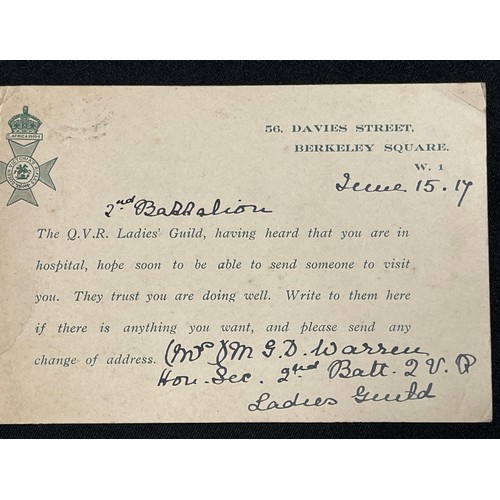 56, DAVIES STREET,
BERKELEY SQUARE.
W. 1
June 15. 17
2nd Battalion
The Q.V.R. Ladies' Guild, having heard that you are in
hospital, hope soon to be able to send someone to visit
you. They trust you are doing well. Write to them here
if there is anything you want, and please send any
change of address. (Mrs) M G. D. Warren
Hon. Sec. 2nd Batt. Q V. R
Ladies Guild